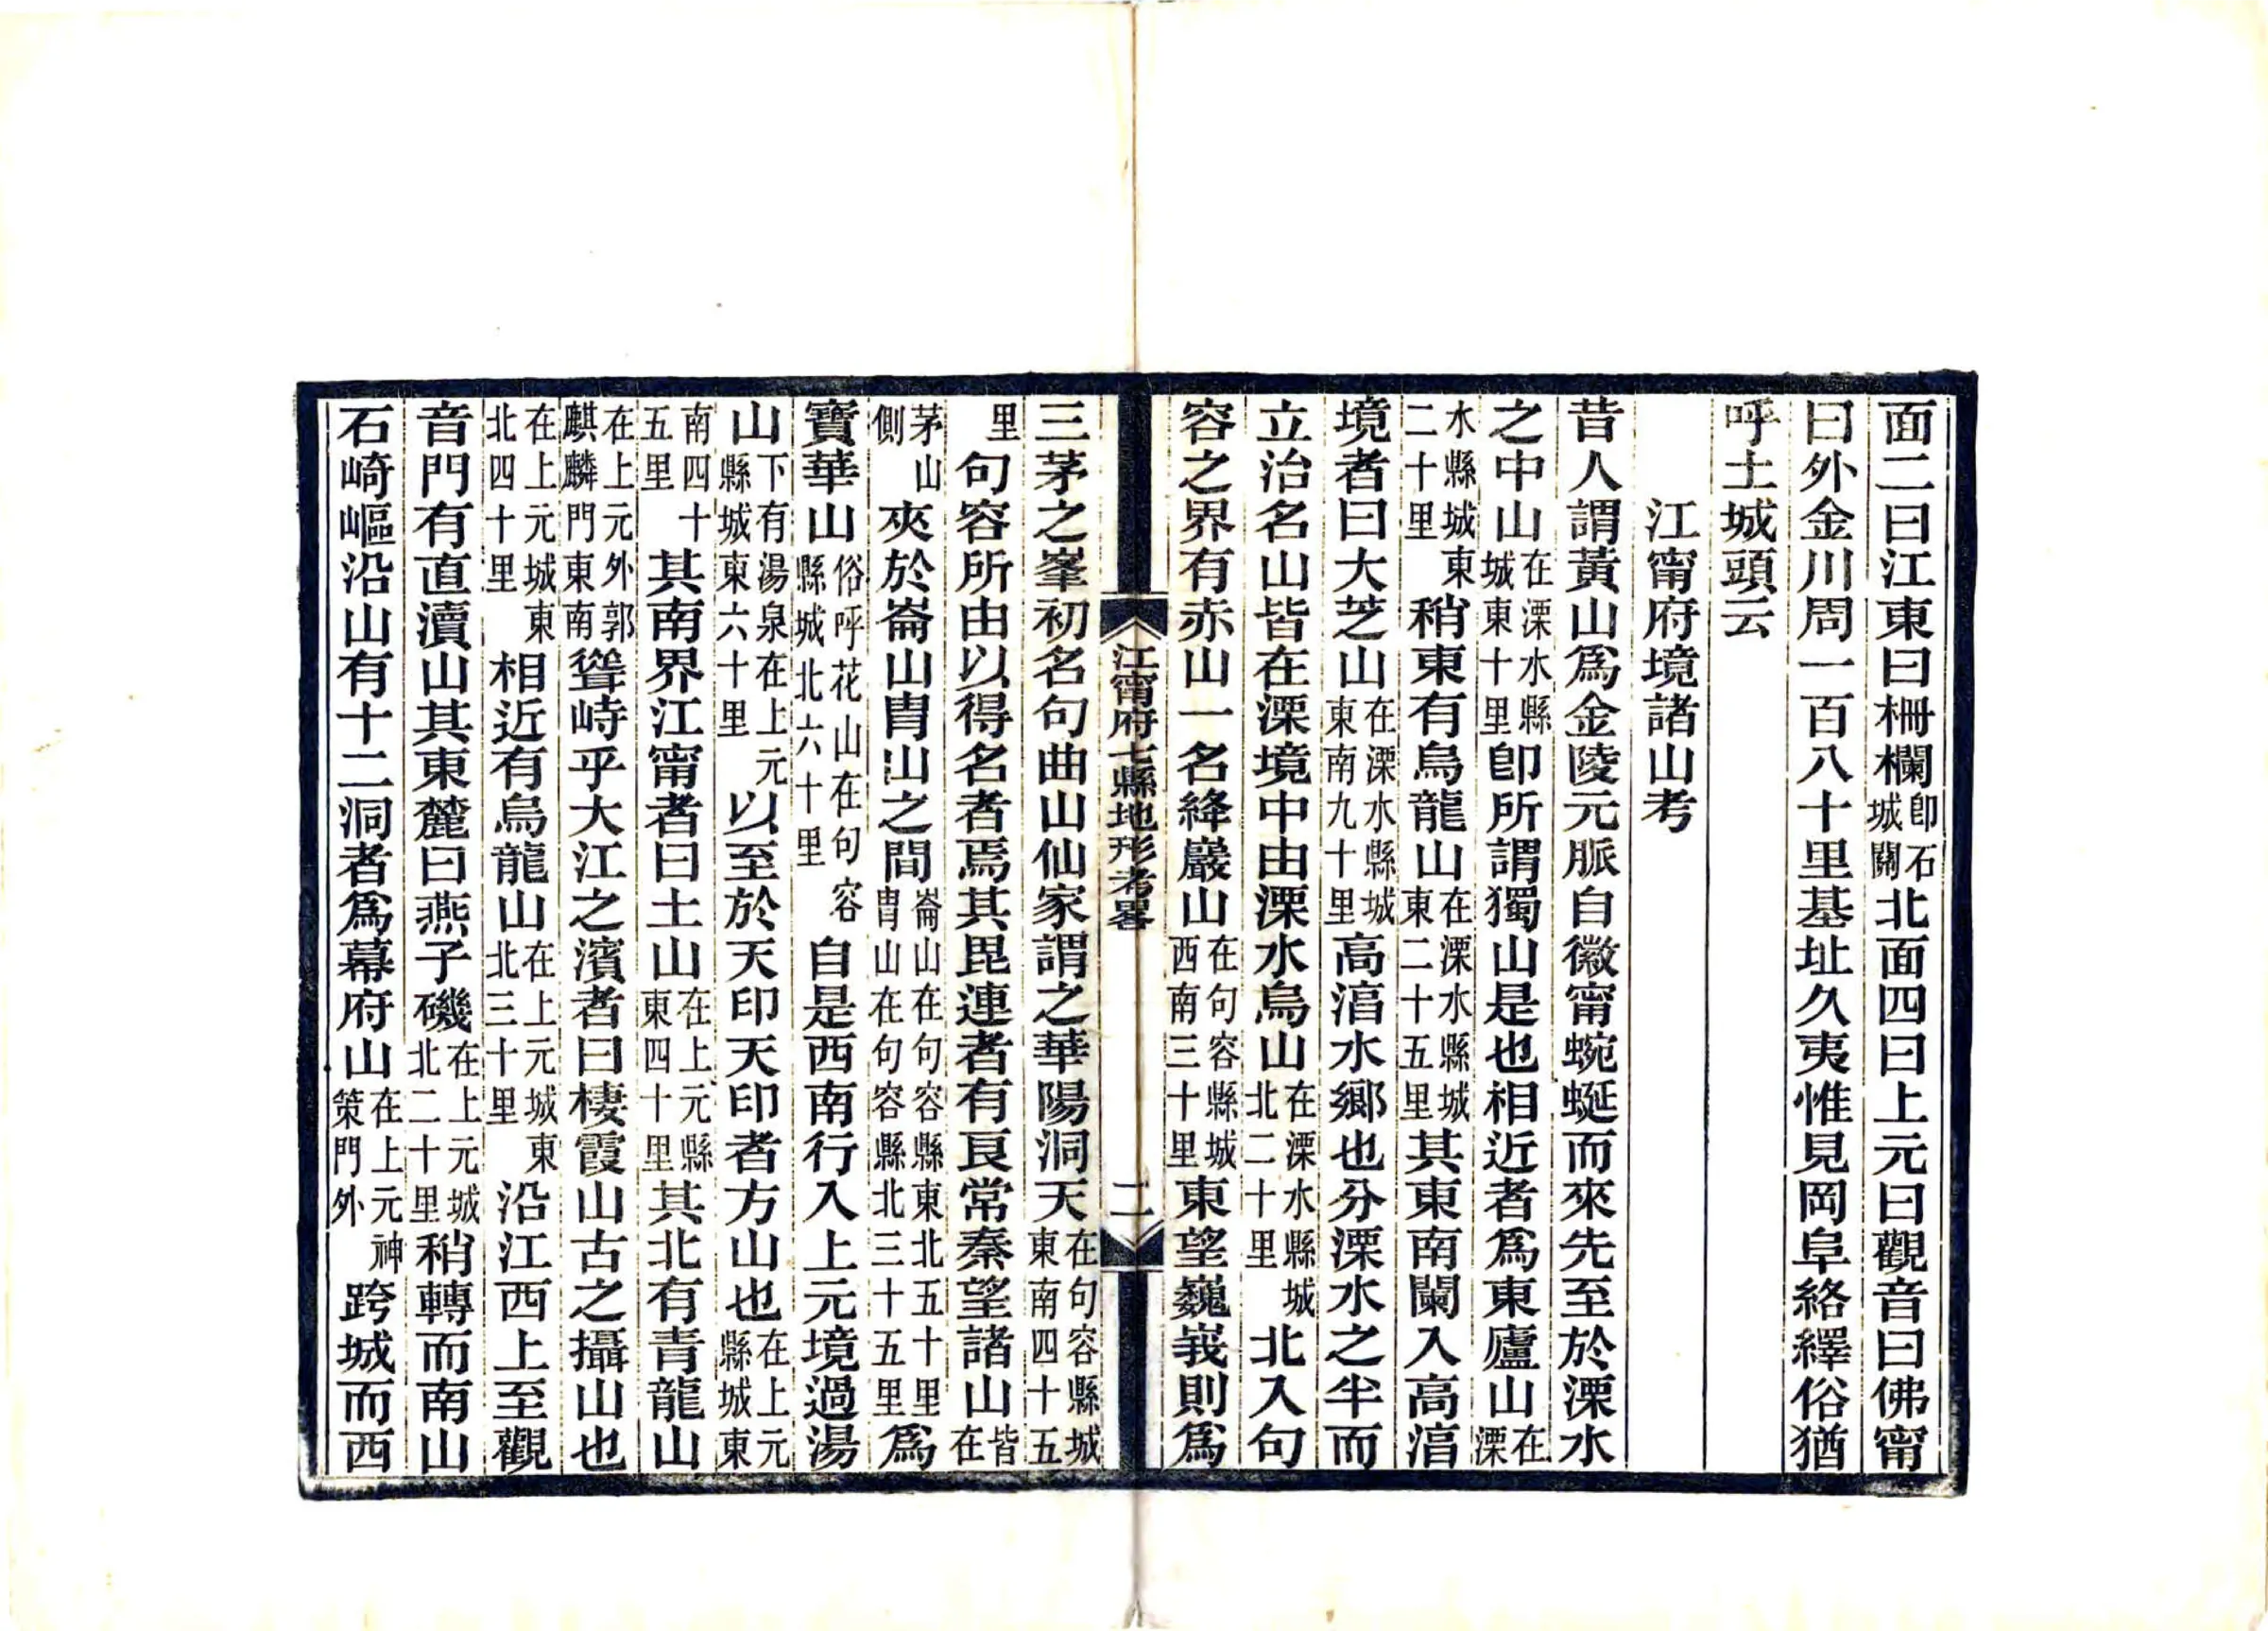 面二曰江東曰柵欄卽石城關北面四曰上元曰觀音曰佛甯
曰外金川周一百八十里基址久夷惟見岡阜絡繹俗猶
呼土城頭云
江甯府境諸山考
昔人謂黃山爲金陵元脈自徽甯蜿蜒而來先至於溧水
之中山在溧水縣城東十里卽所謂獨山是也相近者爲東廬山在溧
水縣城東二十里稍東有烏龍山在溧水縣城東二十五里其東南闌入高湻
境者曰大芝山在溧水縣城東南九十里高湻水鄉也分溧水之半而
立治名山皆在溧境中由溧水烏山在溧水縣城北二十里北入句
容之界有赤山一名絳巖山在句容縣城西南三十里東望巍峩則爲
江甯府七縣地形考畧 二
三茅之峯初名句曲山仙家謂之華陽洞天在句容縣城東南四十五
里句容所由以得名者焉其毘連者有良常秦望諸山皆在
茅山側夾於崙山胄山之間崙山在句容縣東北五十里胄山在句容縣北三十五里爲
寶華山俗呼花山在句容縣城北六十里自是西南行入上元境過湯
山下有湯泉在上元縣城東六十里以至於天印天印者方山也在上元縣城東
南四十五里其南界江甯者曰土山在上元縣東四十里其北有青龍山
在上元外郭麒麟門東南聳峙乎大江之濱者曰棲霞山古之攝山也
在上元城東北四十里相近有烏龍山在上元城東北三十里沿江西上至觀
音門有直瀆山其東麓曰燕子磯在上元城北二十里稍轉而南山
石崎嶇沿山有十二洞者爲幕府山在上元神策門外跨城而西